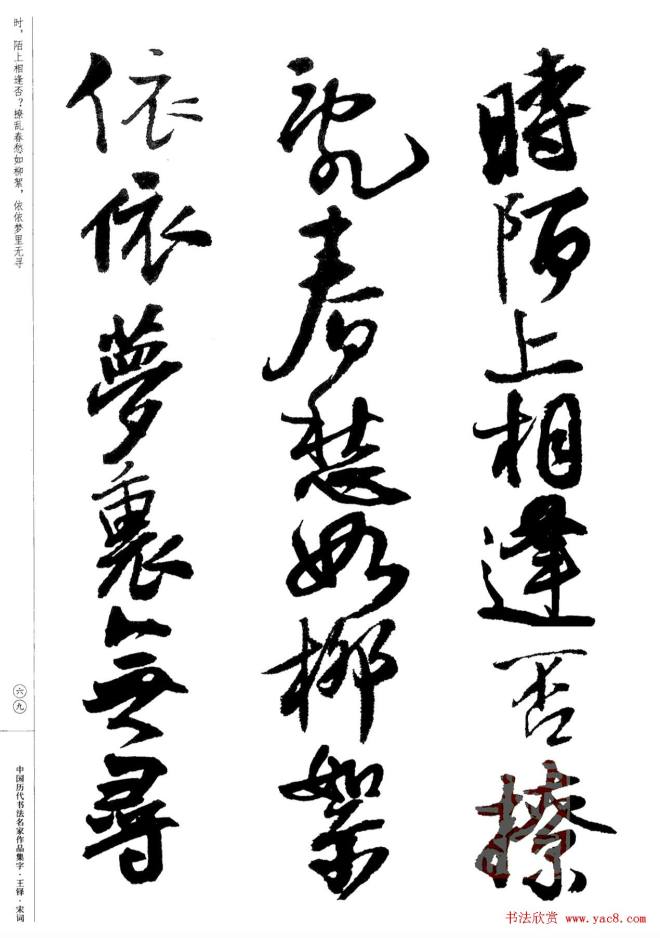 時陌上相逢否撩
亂春愁如柳絮
依依夢裏無尋
时，陌上相逢否？撩乱春愁如柳絮，依依梦里无寻
六九
中国历代书法名家作品集字·王铎·宋词
书法欣赏 www.yac8.com